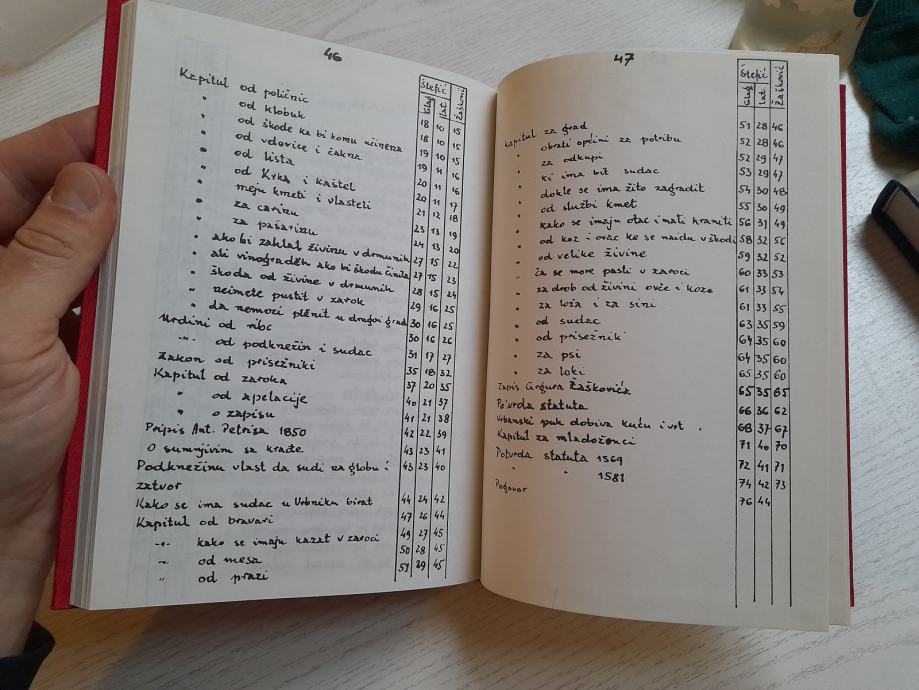 46
Štefić Žašković
glag lat.
Kapitul od poličnic 18 10 15
" od klobuk 18 10 15
" od škode ka bi komu učinena 19 10 15
" od vdovice i čakna 19 11 16
" od lista 20 11 16
" od Krka i kaštel 20 11 17
" meju kmeti i vlasteli 21 12 18
" za carinu 23 13 19
" za pašarinu 24 13 20
" ako bi zahlal živinu v drmunik 27 15 22
" ali vinogradĕh ako bi škodu činila 27 15 23
" škoda od živine v drmunik 28 15 24
" neimete pustit v zarok 29 16 25
" da nemozi plĕnit u drugoi grad 30 16 25
Urdini od ribe 30 16 26
" od podknežin i sudac 31 17 27
Zakon od prisežniki 35 18 32
Kapitul od zaroka 37 20 35
" od apelacije 40 21 37
" o zapisu 41 21 38
Pripis Ant. Petriša 1850 42 22 39
O sumnjivim sa krađe 43 23 41
Podknežinu vlast da sudi za globu i 43 23 40
zatvor
Kako se ima sudac u Vrbniku birat 44 24 42
Kapitul od bravari 47 26 44
" kako se imaju kazat v zaroci 49 27 45
" od mesa 50 28 45
" od prazi 51 29 45
47
Štefić Žašković
glag lat.
Kapitul za grad 51 28 46
" obrati općini za potribu 52 28 46
" za odkupi 52 29 47
" ki ima bit sudac 53 29 47
" dokle se ima žito zagradit 54 30 48
" od službi kmet 55 30 49
" kako se imaju otac i mati hraniti 56 31 49
" od koz i ovac ke se naidu v škodi 58 32 56
" od velike živine 59 32 52
" ča se more pasti v zaroci 60 33 53
" za drob od živini ovče i koze 61 33 54
" za loža i za sini 61 33 55
" od sudac 63 35 59
" od prisežnik 64 35 60
" za psi 64 35 60
" za loki 65 35 60
Zapis Grgura Žaškovića 65 35 65
Potvrda statuta 66 36 62
Vrbanski puk dobiva kuću i vrt . 68 37 67
Kapitul za mladoženci 71 40 70
Potvrda statuta 1569 72 41 71
" " 1581 74 42 73
Pogovor 76 44